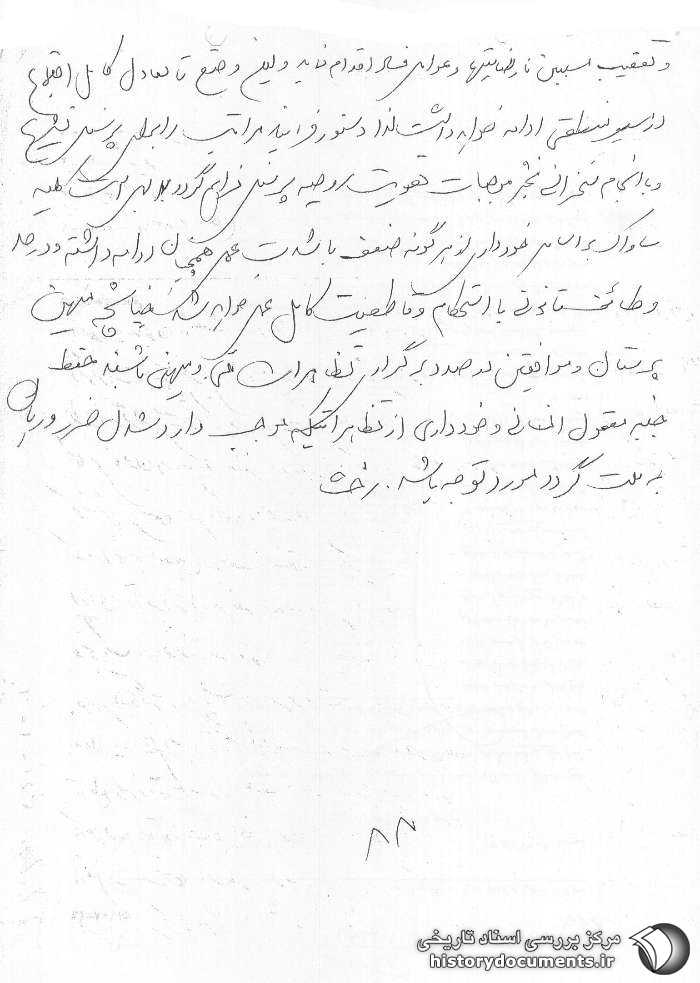 و تعقیب مسببین نارضایتیها و عوامل فساد اقدام نماید و این وضع تا تعادل کامل اوضاع
در مسیر منطقی ادامه خواهد داشت لذا دستور فرمایند مراتب را برای پرسنل تشریح
و با انجام سخنرانی موجبات تقویت روحیه پرسنل فراهم گردد بدیهی است کلیه
ساواک بر اساس خودداری از هر گونه ضعف باشدت عمل همچنان ادامه داشته و در حد
وظائف قانونی با استحکام و قاطعیت کامل عمل خواهد شد ضمنا چنانچه میهن
پرستان و موافقین در صدد برگزاری تظاهرات ملی و میهنی باشند حفظ
جنبه معقول انسانی و خودداری از تظاهراتیکه موجب وارد شدن ضرر و زیان
به ملت گردد مورد توجه باشد.
۸۸
مرکز بررسی اسناد تاریخی
historydocuments.ir